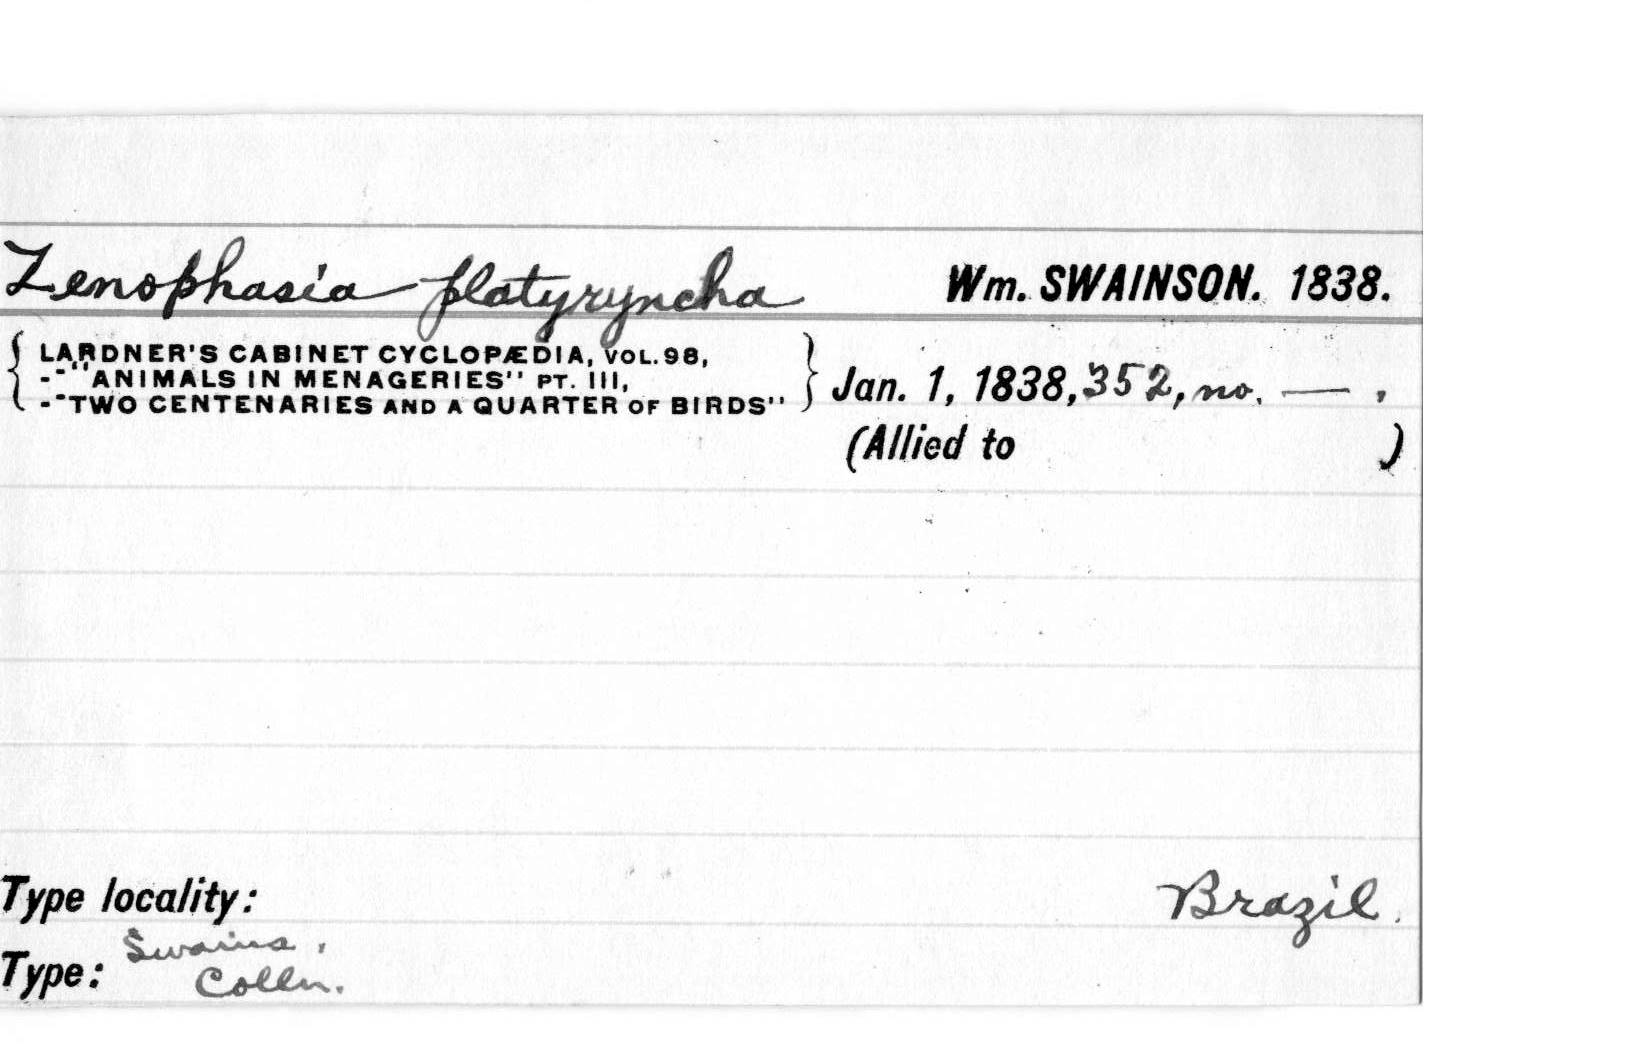 Zenophasia platyryncha Wm. SWAINSON. 1838.
LARDNER'S CABINET CYCLOPÆDIA, VOL. 98,
-- "ANIMALS IN MENAGERIES" PT. III,
-"TWO CENTENARIES AND A QUARTER OF BIRDS"
Jan. 1, 1838, 352, no. — .
(Allied to )
Type locality: Brazil.
Swains.
Type: Colln.